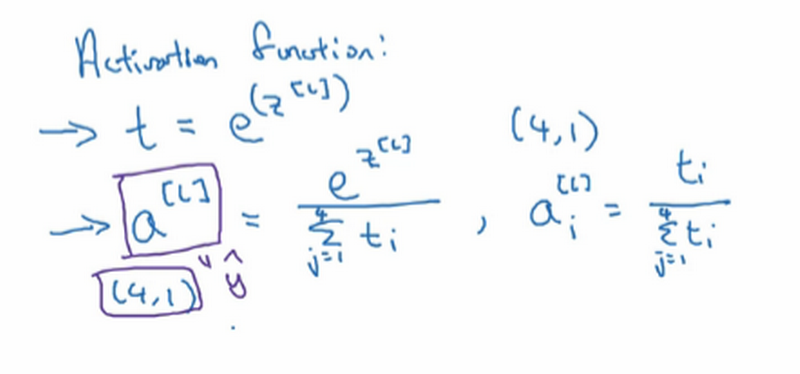 Activation function:
→ t = e^(z^[L]) (4,1)
→ a^[L] = e^z^[L] / ∑_{j=1}^{4} t_i , a_i^[L] = t_i / ∑_{j=1}^{4} t_i
(4,1) ŷ